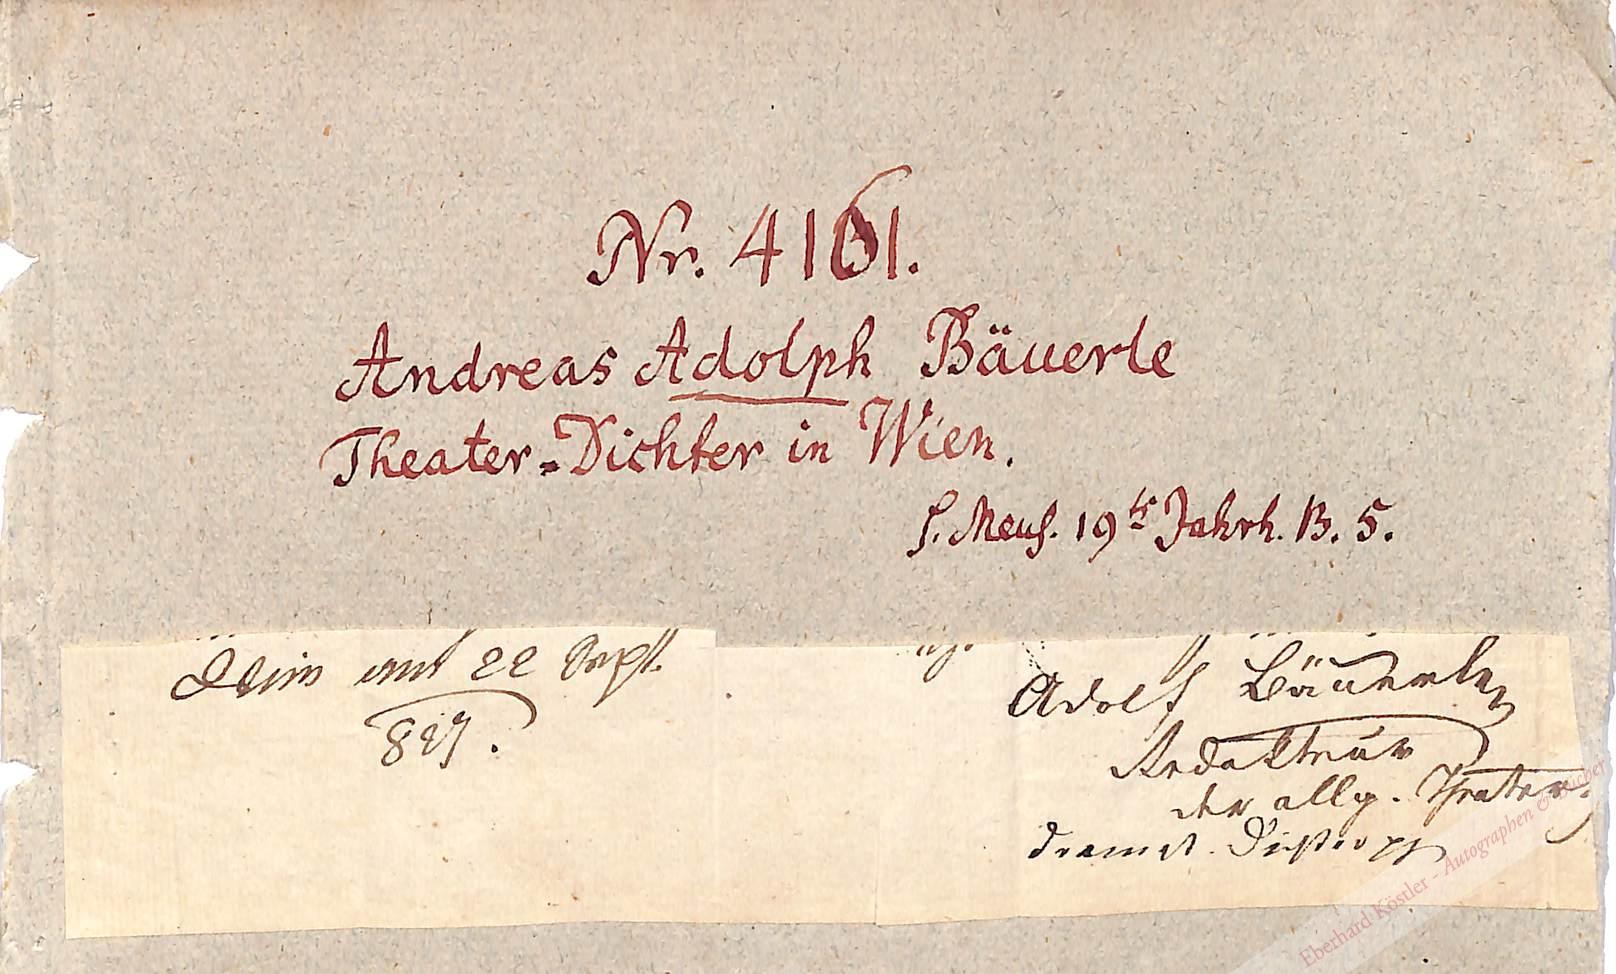 Nr. 4161.
Andreas Adolph Bäuerle
Theater-Dichter in Wien.
S. Meus. 19ts Jahrh. B. 5.
Wien am 22 Sept.
827.
Adolf Bäuerle
Redakteur
der allg. Theater-
dramat. Dichter
Eberhard Köstler - Autographen & Bücher